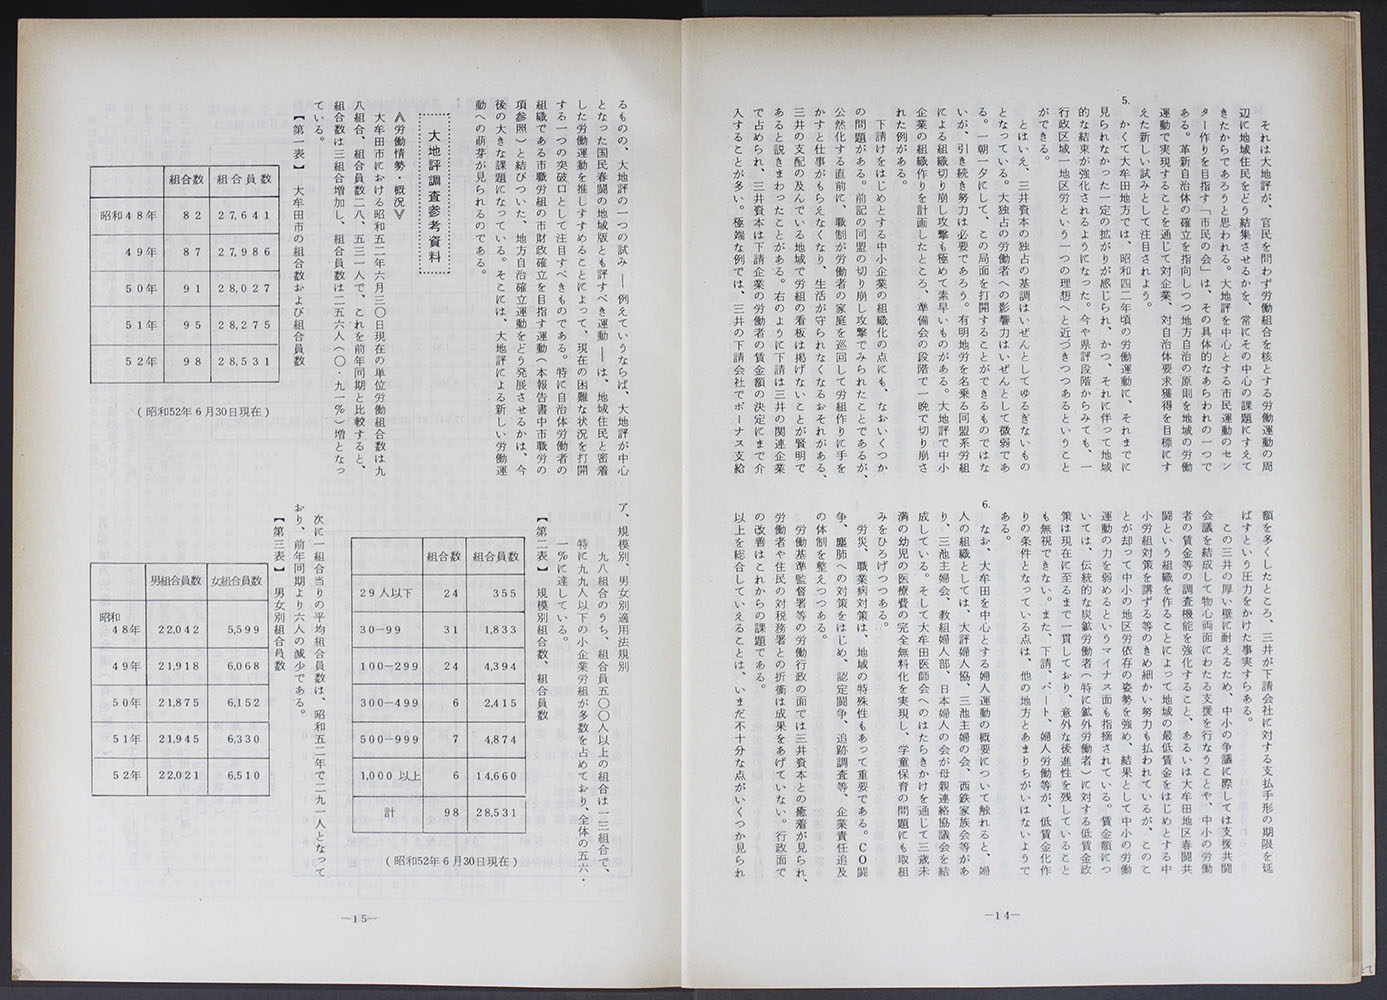 それは大地評が、官民を問わず労働組合を核とする労働運動の周
辺に地域住民をどう結集させるかを、常にその中心の課題にすえて
きたからであろうと思われる。大地評を中心とする市民運動のセン
ター作りを目指す「市民の会」は、その具体的なあらわれの一つで
ある。革新自治体の確立を指向しつつ地方自治の原則を地域の労働
運動で実現することを通じて対企業、対自治体要求獲得を目標にす
えた新しい試みとして注目されよう。
5.
かくて大牟田地方では、昭和四二年頃の労働運動に、それまでに
見られなかった一定の拡がりが感じられ、かつ、それに伴って地域
的な結束が強化されるようになった。今や県評段階からみても、一
行政区域一地区労という一つの理想へと近づきつつあるということ
ができる。
とはいえ、三井資本の独占の基調はいぜんとしてゆるぎないもの
となっている。大独占の労働者への影響力はいぜんとして微弱であ
る。一朝一夕にして、この局面を打開することができるものではな
いが、引き続き努力は必要であろう。有明地労を名乗る同盟系労組
による組織切り崩し攻撃も極めて素早いものがある。大地評で中小
企業の組織作りを計画したところ、準備会の段階で一晩で切り崩さ
れた例がある。
下請けをはじめとする中小企業の組織化の点にも、なおいくつか
の問題がある。前記の同盟の切り崩し攻撃でみられたことであるが、
公然化する直前に、職制が労働者の家庭を巡回して労組作りに手を
かすと仕事がもらえなくなり、生活が守られなくなるおそれがある、
三井の支配の及んでいる地域で労組の看板は掲げないことが賢明で
あると説きまわったことがある。右のように下請は三井の関連企業
で占められ、三井資本は下請企業の労働者の賃金額の決定にまで介
入することが多い。極端な例では、三井の下請会社でボーナス支給
額を多くしたところ、三井が下請会社に対する支払手形の期限を延
ばすという圧力をかけた事実すらある。
この三井の厚い壁に耐えるため、中小の争議に際しては支援共闘
会議を結成して物心両面にわたる支援を行なうことや、中小の労働
者の賃金等の調査機能を強化すること、あるいは大牟田地区春闘共
闘という組織を作ることによって地域の最低賃金をはじめとする中
小労組対策を講ずる等のきめ細かい努力も払われているが、このこ
とが却って中小の地区労依存の姿勢を強め、結果として中小の労働
運動の力を弱めるというマイナス面も指摘されている。賃金額につ
いては、伝統的な炭鉱労働者（特に鉱外労働者）に対する低賃金政
策は現在に至るまで一貫しており、意外な後進性を残していること
も無視できない。また、下請、パート、婦人労働等が、低賃金化作
りの条件となっている点は、他の地方とあまりちがいはないようで
ある。
6.
なお、大牟田を中心とする婦人運動の概要について触れると、婦
人の組織としては、大評婦人協、三池主婦の会、西鉄家族会等があ
り、三池主婦会、教組婦人部、日本婦人の会が母親連絡協議会を結
成している。そして大牟田医師会へのはたらきかけを通じて三歳未
満の幼児の医療費の完全無料化を実現し、学童保育の問題にも取組
みをひろげつつある。
労災、職業病対策は、地域の特殊性もあって重要である。ＣＯ闘
争、塵肺への対策をはじめ、認定闘争、追跡調査等、企業責任追及
の体制を整えつつある。
労働基準監督署等の労働行政の面では三井資本との癒着が見られ、
労働者や住民の対税務署との折衝は成果をあげていない。行政面で
の改善はこれからの課題である。
以上を総合していえることは、いまだ不十分な点がいくつか見られ
—14—
るものの、大地評の一つの試み——例えていうならば、大地評が中心
となった国民春闘の地域版とも評すべき運動——は、地域住民と密着
した労働運動を推しすすめることによって、現在の困難な状況を打開
する一つの突破口として注目すべきものである。特に自治体労働者の
組織である市職労組の市財政確立を目指す運動（本報告書中市職労の
項参照）と結びついた、地方自治確立運動をどう発展させるかは、今
後の大きな課題になっている。そこには、大地評による新しい労働運
動への萌芽が見られるのである。
大地評調査参考資料
≪労働情勢・概況≫
大牟田市における昭和五二年六月三〇日現在の単位労働組合数は九
八組合、組合員数二八、五三一人で、これを前年同期と比較すると、
組合数は三組合増加し、組合員数は二五六人（〇・九一％）増となっ
ている。
【第一表】 大牟田市の組合数および組合員数
組合数 組合員数
昭和48年 82 27,641
49年 87 27,986
50年 91 28,027
51年 95 28,275
52年 98 28,531
（昭和52年6月30日現在）
ア、規模別、男女別適用法規別
九八組合のうち、組合員五〇〇人以上の組合は一三組合で、
特に九九人以下の小企業労組が多数を占めており、全体の五六・
一％に達している。
【第二表】 規模別組合数、組合員数
組合数 組合員数
29人以下 24 355
30—99 31 1,833
100—299 24 4,394
300—499 6 2,415
500—999 7 4,874
1,000以上 6 14,660
計 98 28,531
（昭和52年6月30日現在）
次に一組合当りの平均組合員数は、昭和五二年で二九一人となって
おり、前年同期より六人の減少である。
【第三表】 男女別組合員数
男組合員数 女組合員数
昭和
48年 22,042 5,599
49年 21,918 6,068
50年 21,875 6,152
51年 21,945 6,330
52年 22,021 6,510
—15—